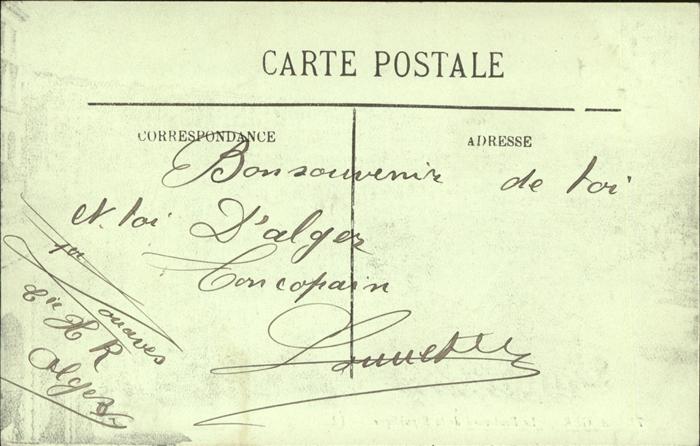 CARTE POSTALE
CORRESPONDANCE
ADRESSE
Bonsouvenir de toi
et toi D'alger
Toncopain
1er Zouaves
Cie H R
Alger